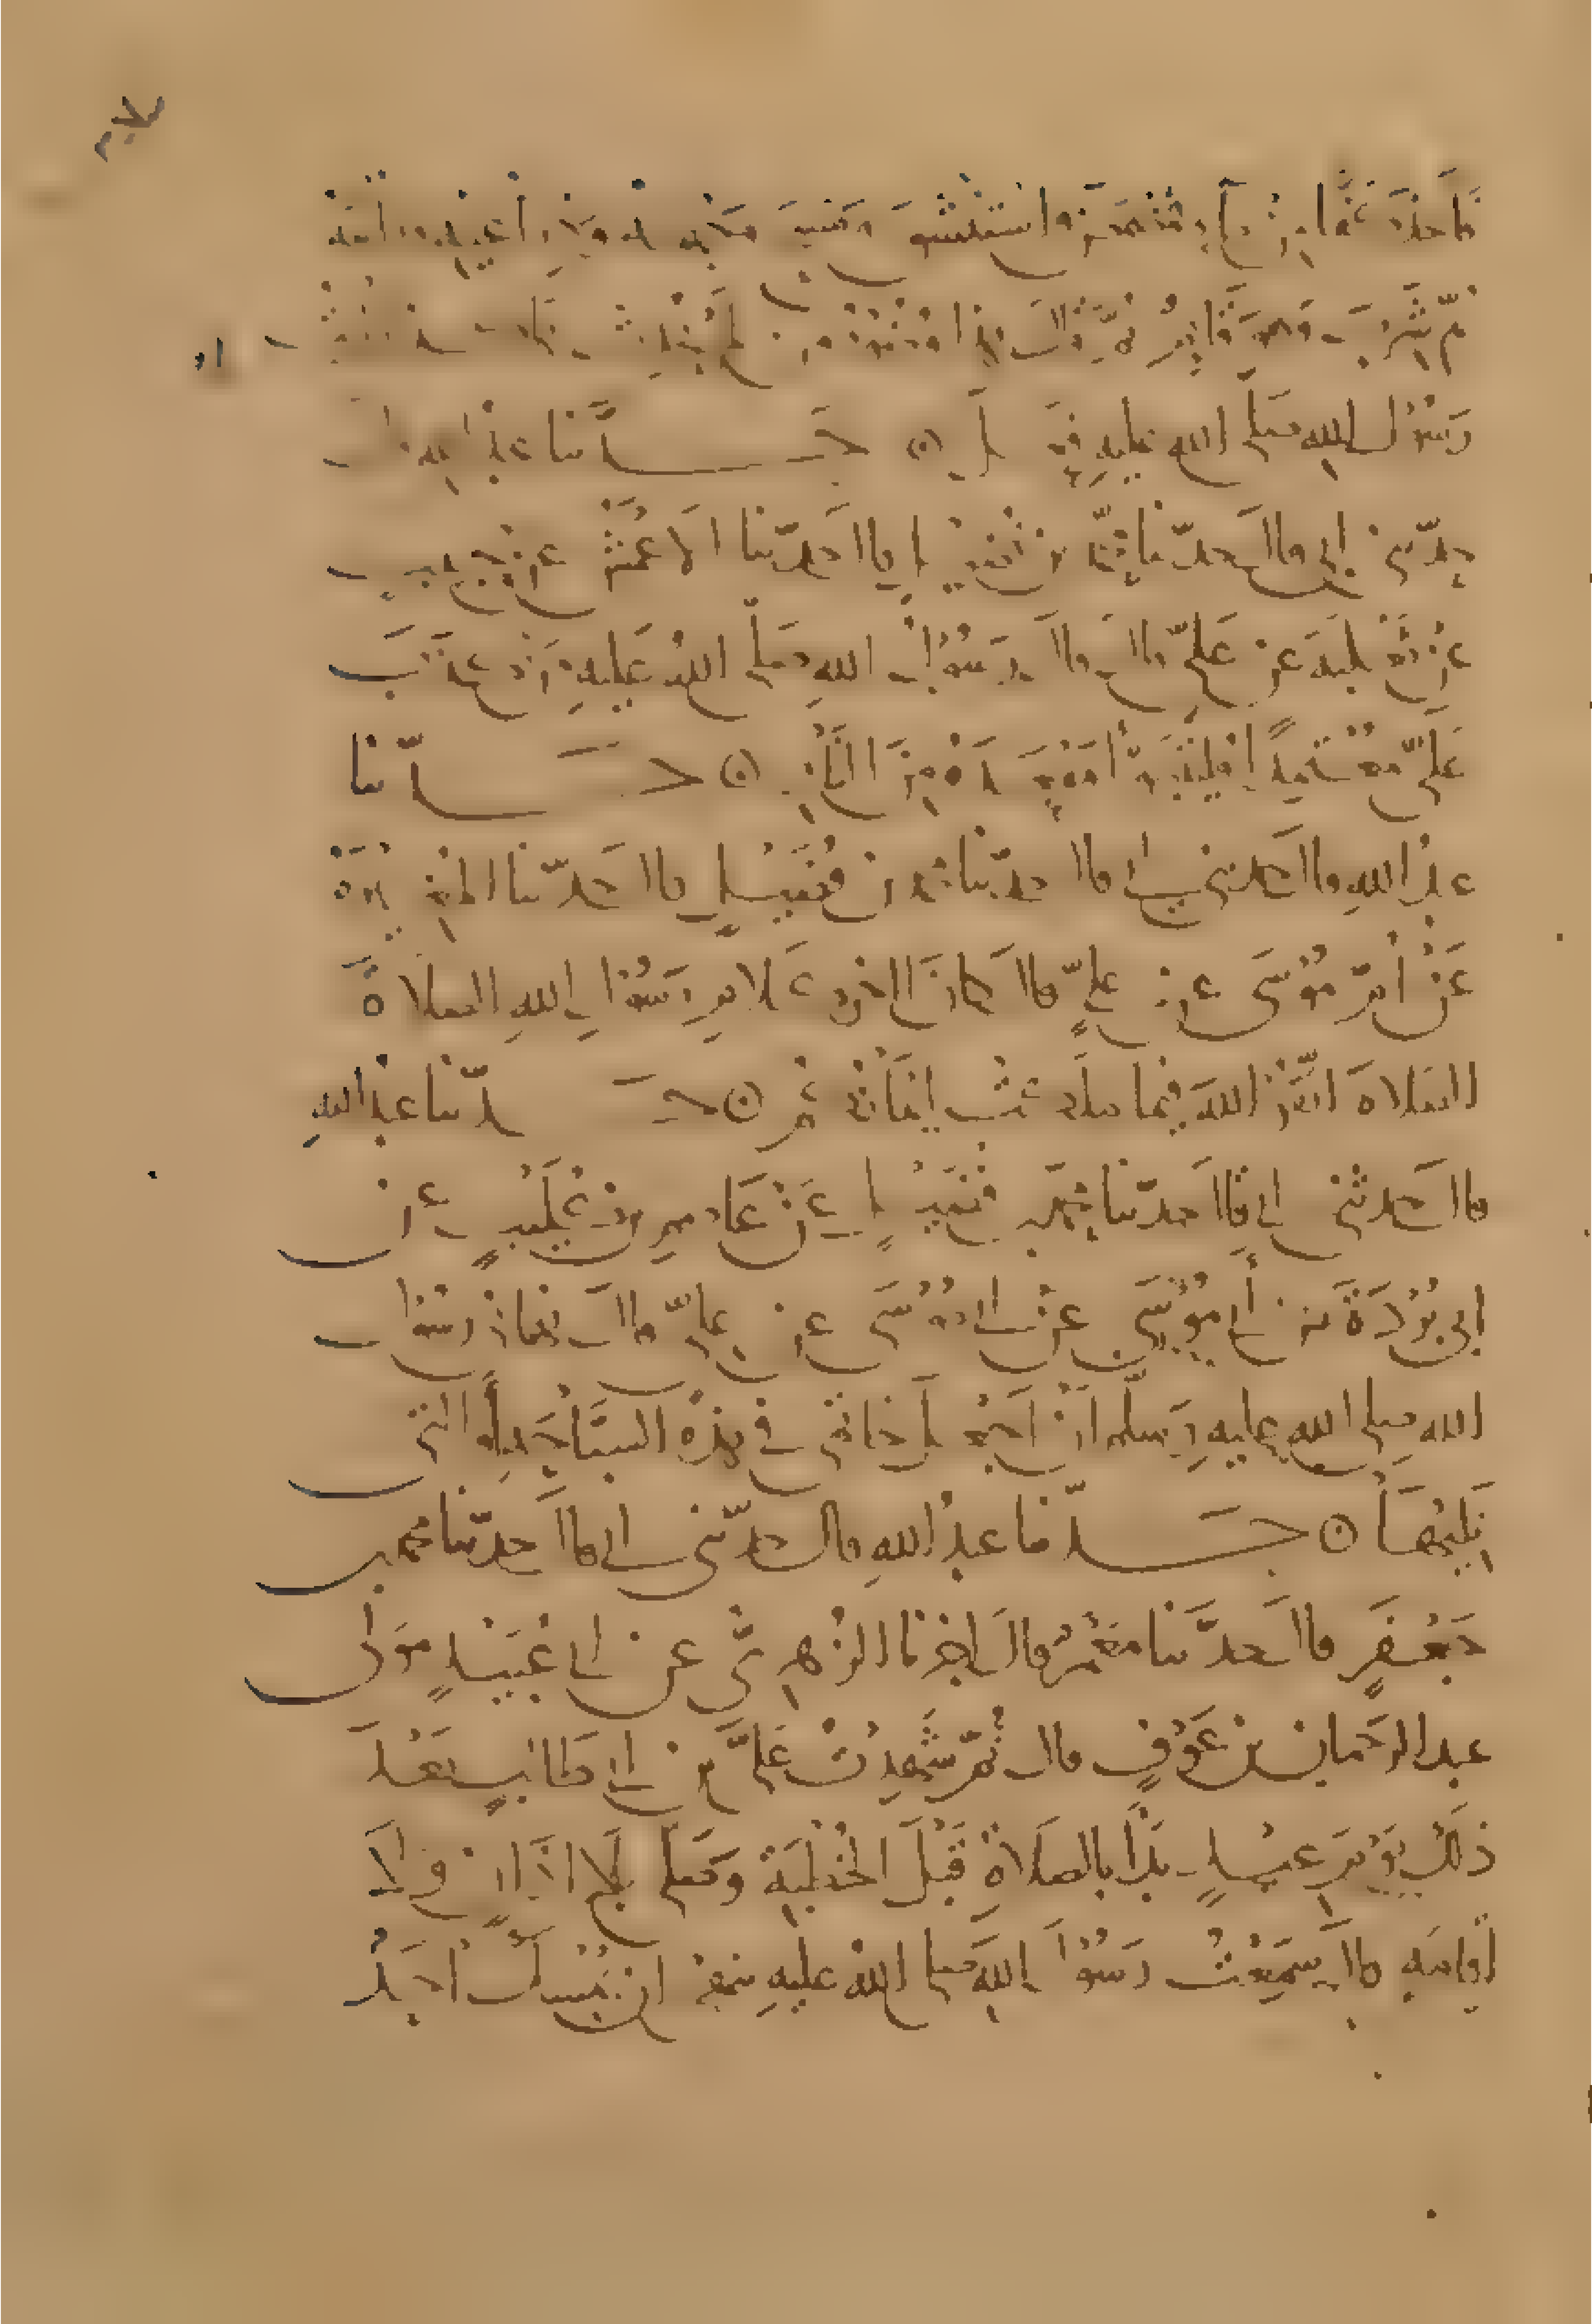 فأخذ كفا من ماء فتمضمض واستنشق ومسح وجهه وذراعيه ورأسه
ثم شرب وهو قائم ثم قال هذا وضوء من لم يحدث هكذا
رسول الله صلى الله عليه فعل ۞ حدثنا عبد الله قال
حدثني ابي قال حدثنا محمد بن فضيل قال حدثنا الاعمش عن حبيب
عن ثعلبة عن علي قال قال رسول الله صلى الله عليه من كذب
علي متعمدا فليتبوأ مقعده من النار ۞ حدثنا
عبد الله قال حدثني ابي قال حدثنا محمد بن فضيل قال حدثنا المغيرة
عن أم موسى عن علي قال كان اخر كلام رسول الله الصلاة
الصلاة اتقوا الله فيما ملكت ايمانكم ۞ حدثنا عبد الله
قال حدثني ابي قال حدثنا محمد بن فضيل عن عاصم بن كليب عن
ابي بردة بن أبي موسى عن ابي موسى عن علي قال نهاني رسول
الله صلى الله عليه وسلم ان اجعل خاتمي في هذه السباحة او التي
تليها ۞ حدثنا عبد الله قال حدثني ابي قال حدثنا محمد بن
جعفر قال حدثنا معمر قال اخبرنا الزهري عن ابي عبيد مولى
عبد الرحمان بن عوف قال ثم شهدت علي بن ابي طالب بعد
ذلك يوم عيد بدأ بالصلاة قبل الخطبة وصلى بلا اذان ولا
اقامة قال سمعت رسول الله صلى الله عليه نهى ان يمسك احد